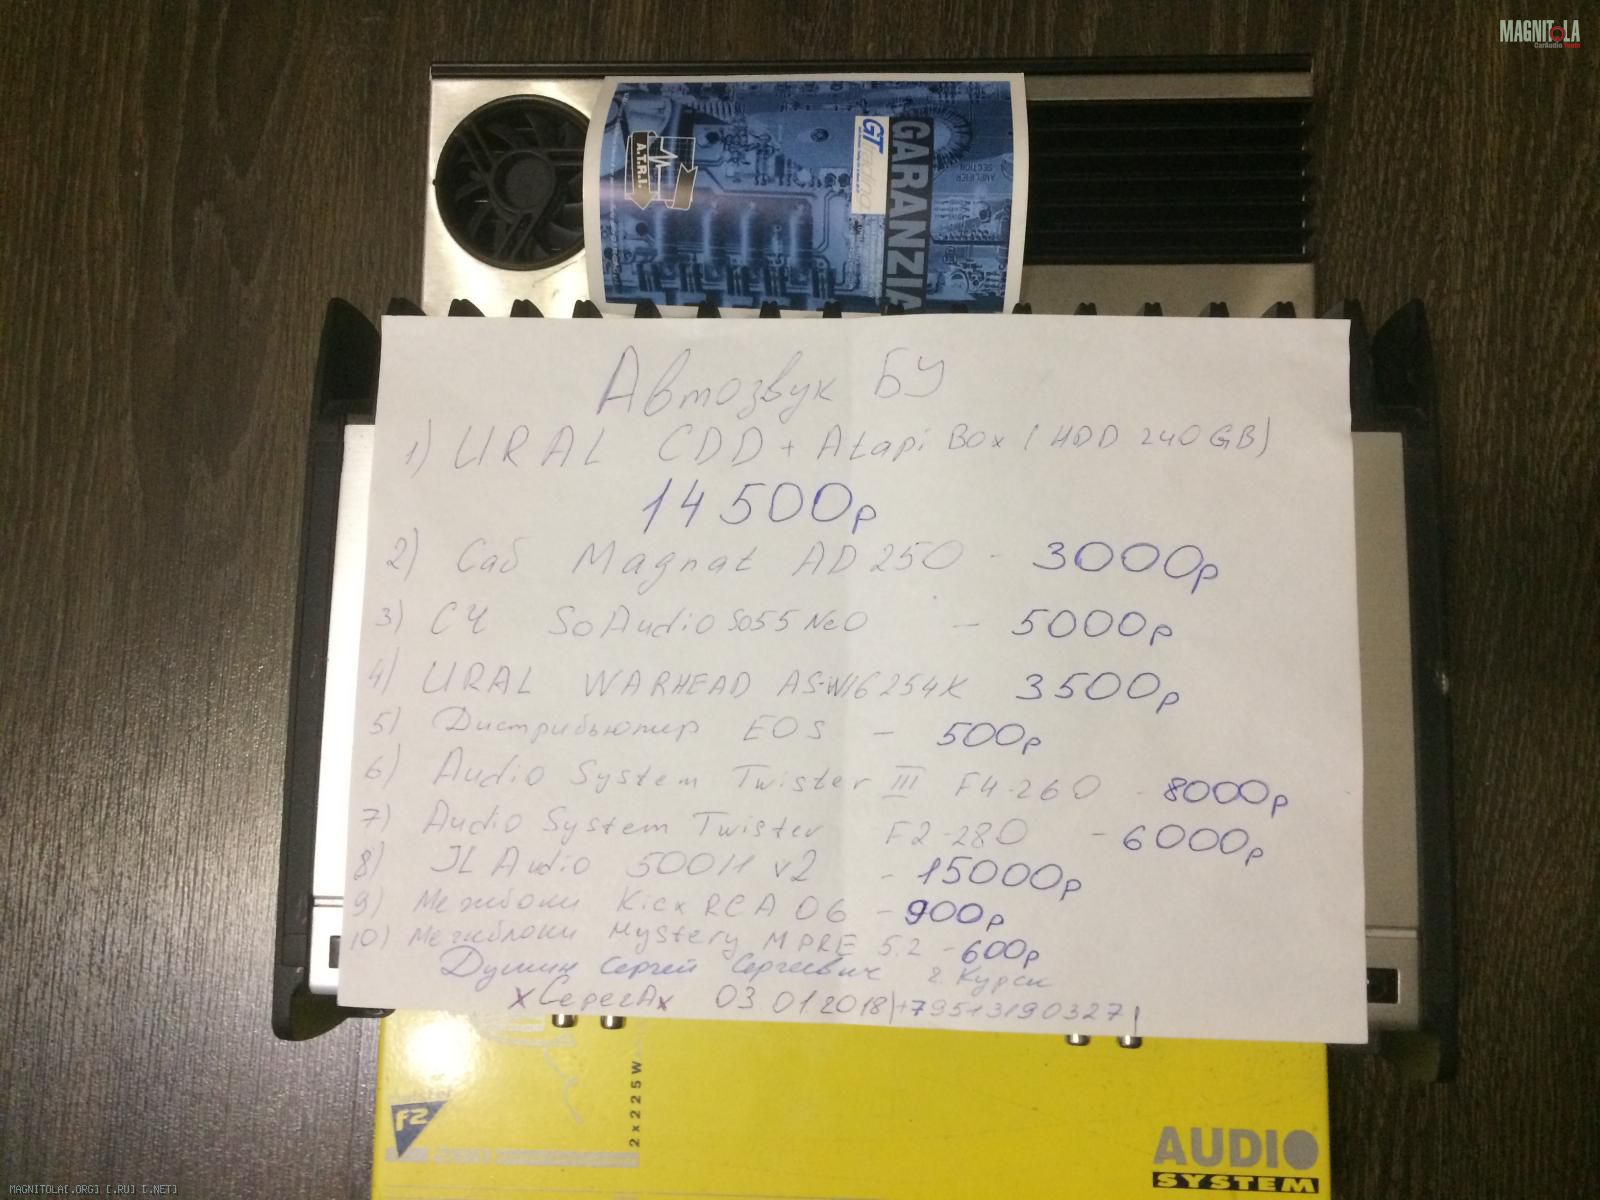 MAGNITOLA
CarAudio Team
A.T.R.I.
GTtrading
GARANZIA
AMPLIFIER
SECTION
Автозвук БУ
1) URAL CDD + Atapi Box (HDD 240GB)
14500р
2) Саб Magnat AD 250 - 3000р
3) СЧ SoAudio So55 NeO - 5000р
4) URAL WARHEAD AS-W16254K 3500р
5) Дистрибьютир EOS - 500р
6) Audio System Twister III F4-260 - 8000р
7) Audio System Twister F2-280 - 6000р
8) JL Audio 500/1 v2 - 15000р
9) Межблоки Kicx RCA 06 - 900р
10) Межблоки Mystery MPRE 5.2 - 600р
Сергей Сергеевич г. Курск
xСерегАx 03.01.2018 |+79513190327|
2x225W
F2
280
AUDIO
SYSTEM
MAGNITOLA[.ORG] [.RU] [.NET]